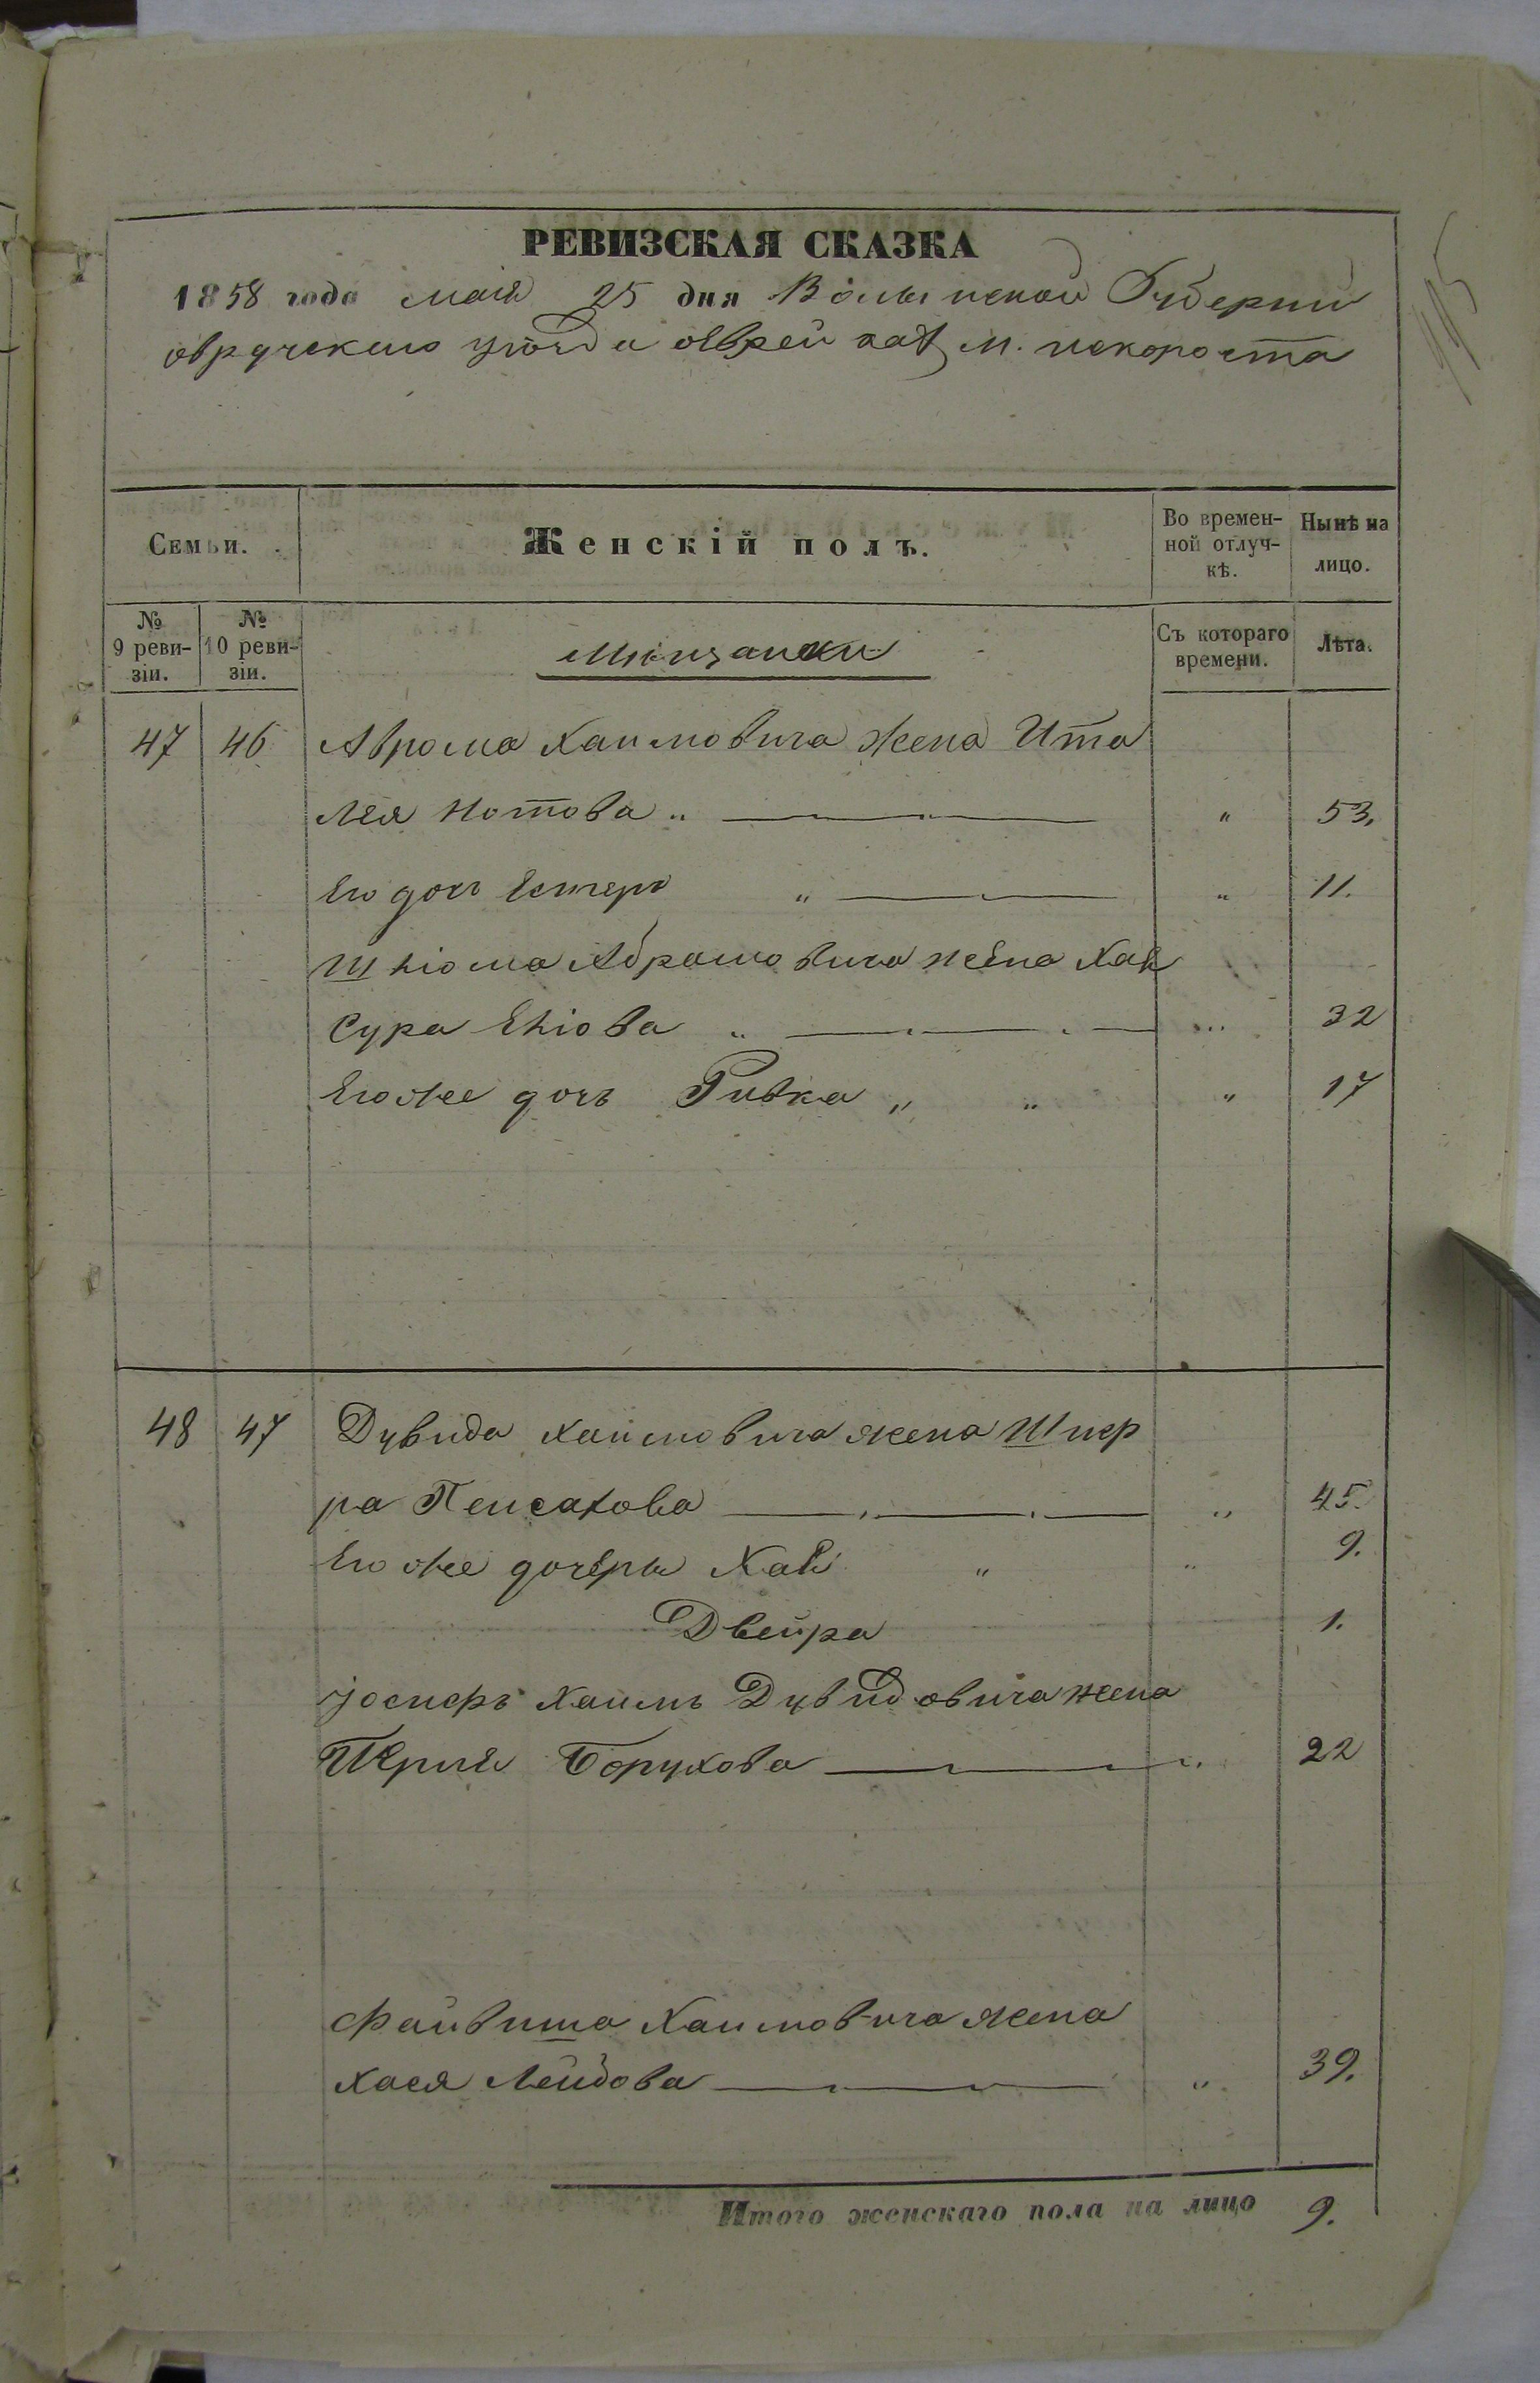 РЕВИЗСКАЯ СКАЗКА
1858 года мая 25 дня Волынской Губерніи
овручскаго уѣзда м. искороста
Семьи.
Женскій полъ.
Во времен-
ной отлуч-
кѣ.
Нынѣ на
лицо.
№
9 реви-
зіи.
№
10 реви-
зіи.
Мѣщански
Съ котораго
времени.
Лѣта.
47 46 Аврома Хаимовича жена Ита
Лея Нотова „ „ 53.
Его дочь Естеръ „ „ 11.
Шліома Абрамовича жена Хая
Сура Еліова „ „ 32
Егоже дочь Ривка „ „ „ 17
48 47 Дувида Хаимовича жена Шпер
ра Пейсахова „ 45.
Его же дочеры Хая „ „ 9.
Двейра 1.
Іосифъ Хаимъ Дувидовича жена
Перля Борухова „ 22
Файвиша Хаимовича жена
Хася Лейбова „ 39.
Итого женскаго пола на лицо 9.